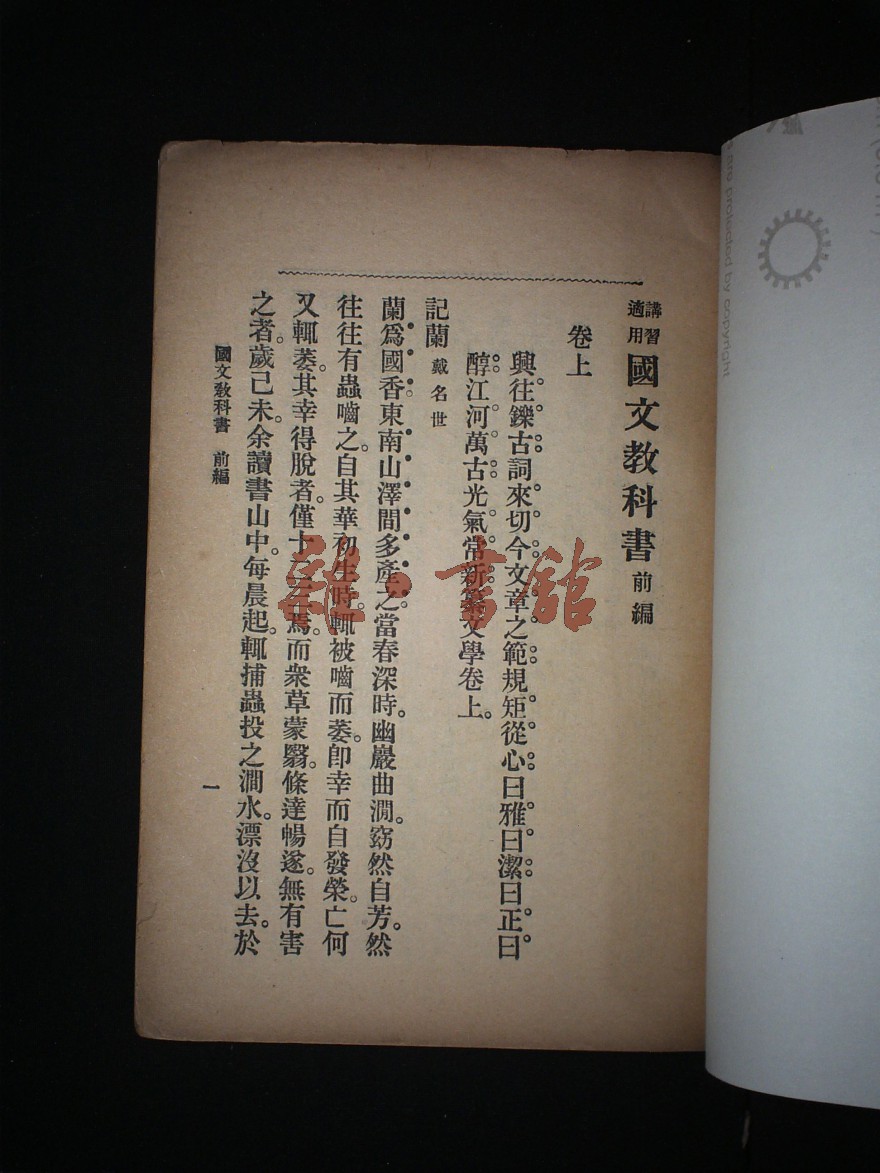 講習
適用
國文教科書 前編
卷上
興往鑠古。詞來切今。文章之範。規矩從心。曰雅曰潔。曰正曰
醇。江河萬古。光氣常新。纂文學卷上。
記蘭 戴名世
蘭爲國香。東南山澤間多產之。當春深時。幽巖曲澗。窈然自芳。然
往往有蟲嚙之。自其華初生時。輒被嚙而萎。卽幸而自發榮。亡何
又輒萎。其幸得脫者。僅十二三焉。而衆草蒙翳。條達暢遂。無有害
之者。歲己未。余讀書山中。每晨起。輒捕蟲投之澗水。漂沒以去。於
國文教科書 前編
一
雜·書館
are protected by copyright